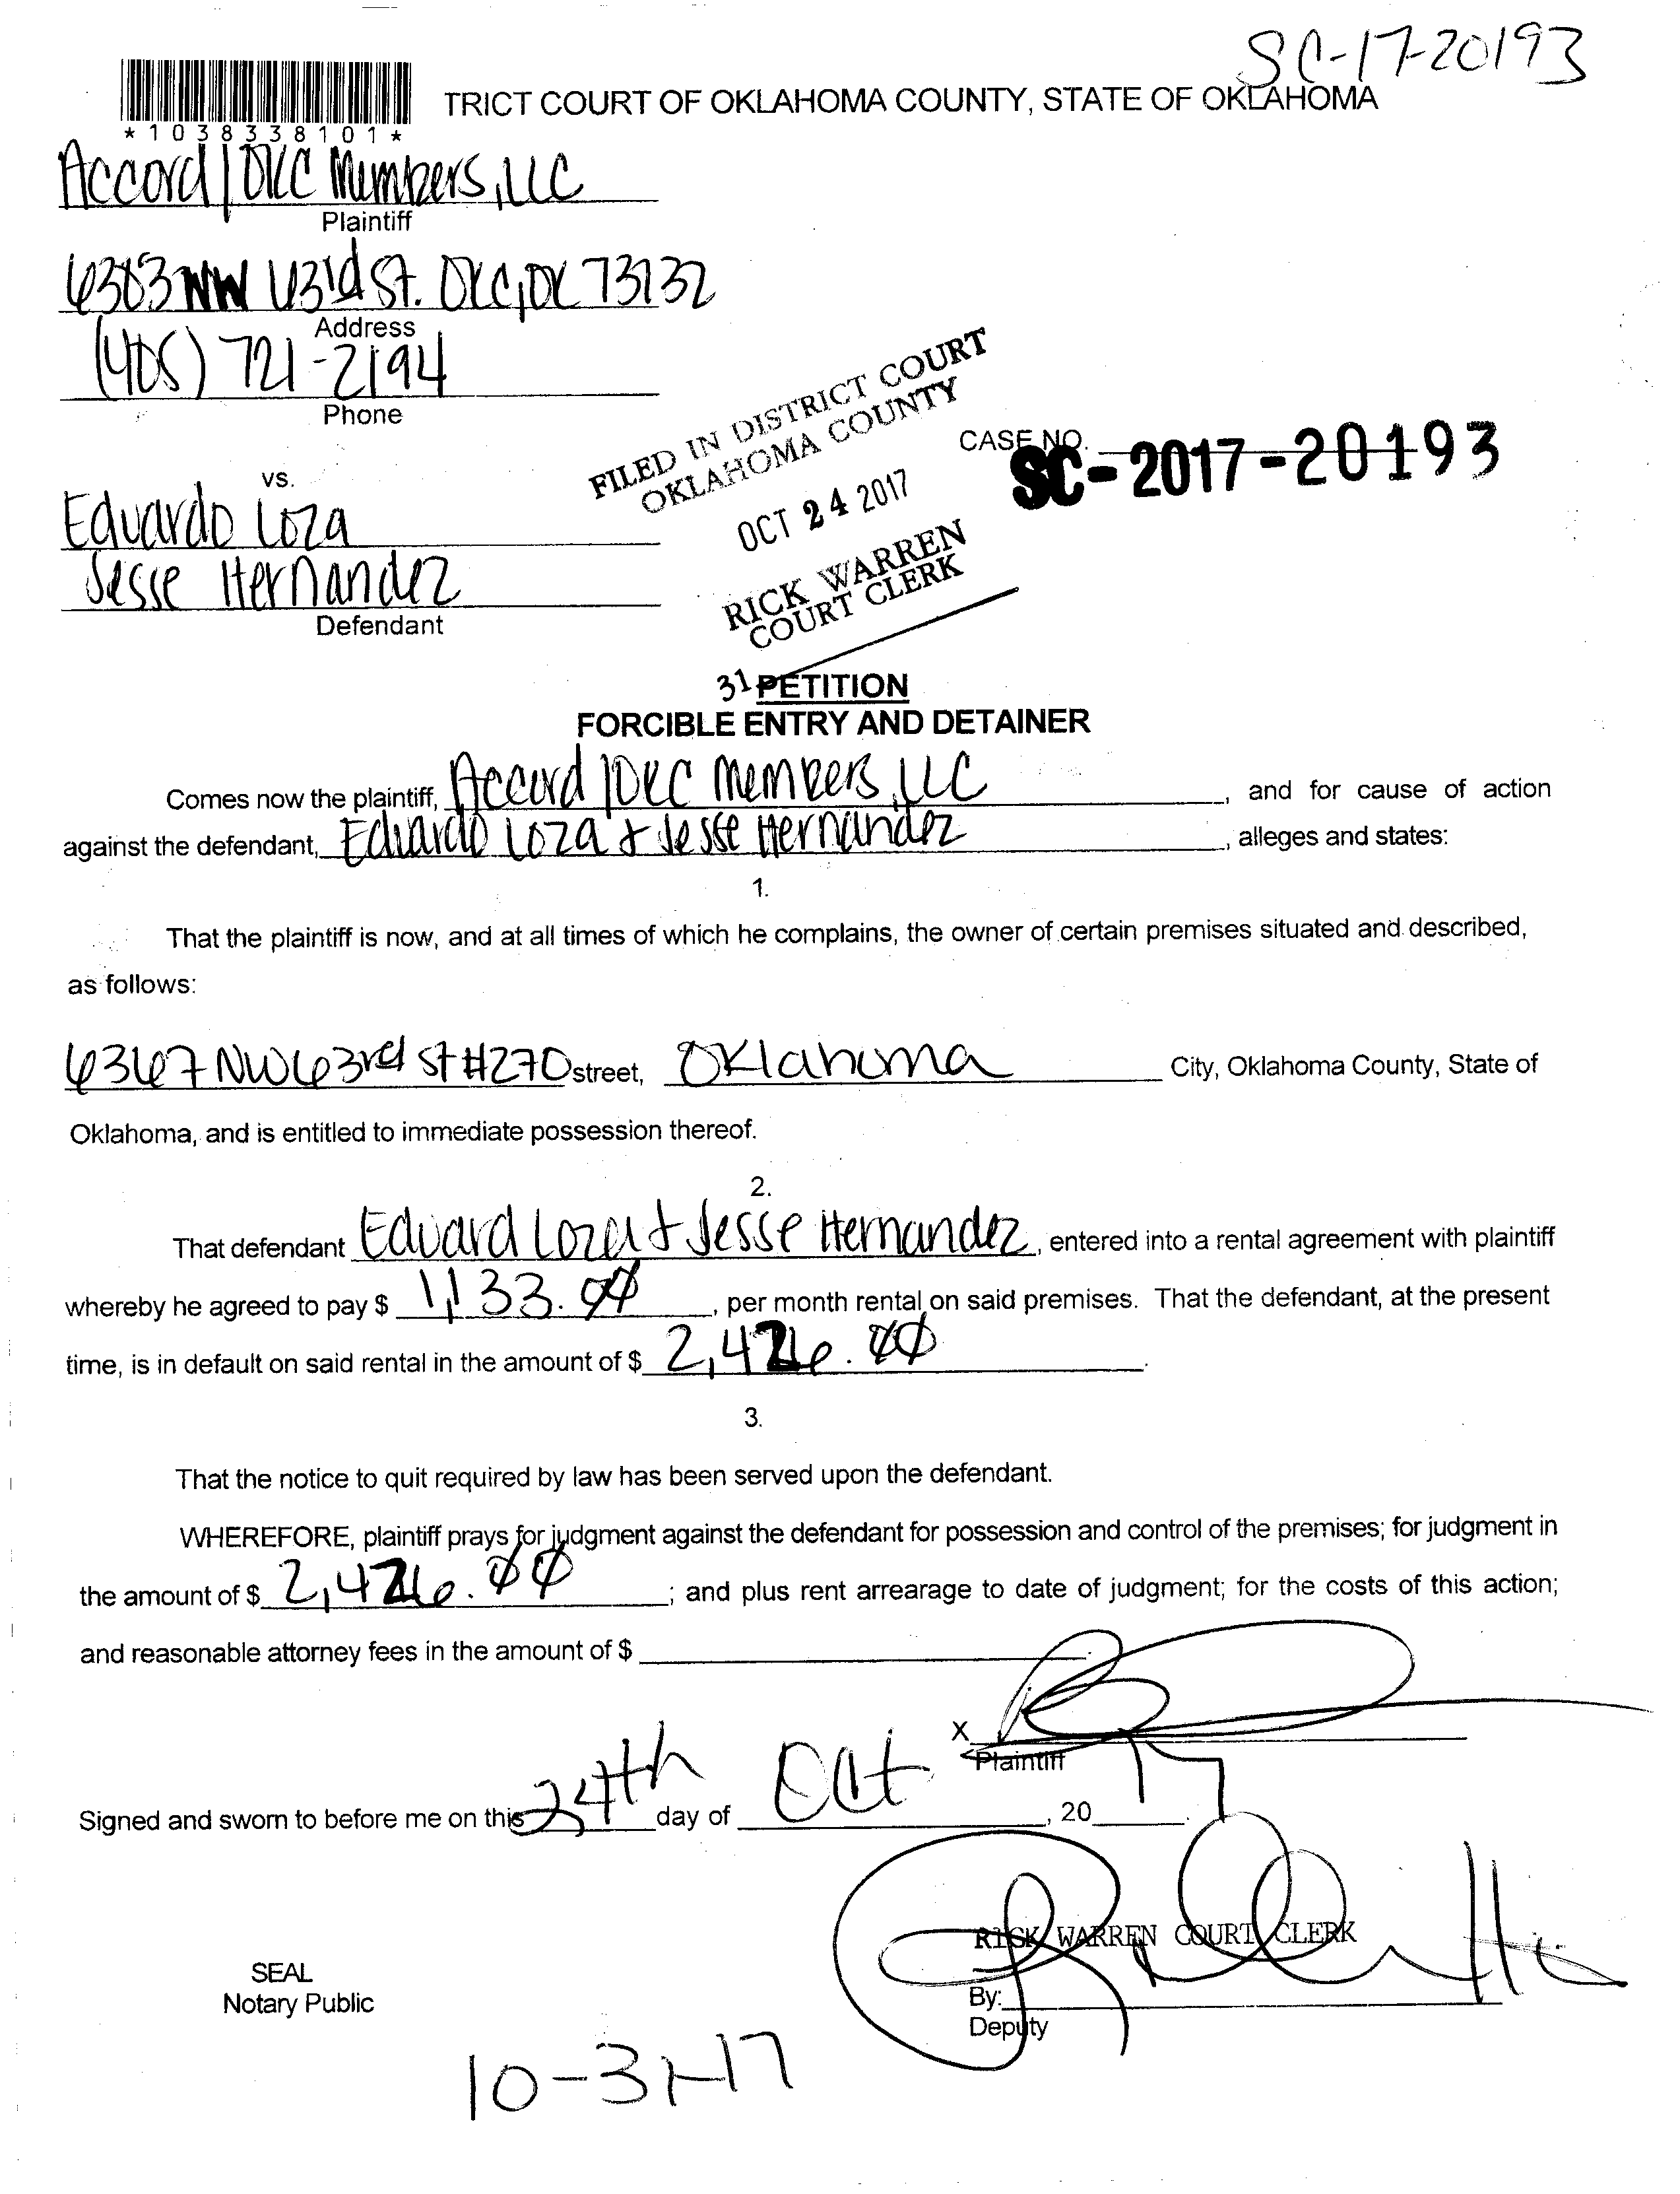 SC-17-20193
TRICT COURT OF OKLAHOMA COUNTY, STATE OF OKLAHOMA
*1038338101*
Accord/OKC Members, LLC
Plaintiff
6303 NW 63rd St. OKC, OK 73132
Address
(405) 721-2194
Phone
FILED IN DISTRICT COURT
OKLAHOMA COUNTY
OCT 24 2017
RICK WARREN
COURT CLERK
31
CASE NO.
SC-2017-20193
vs.
Eduardo Loza
Jesse Hernandez
Defendant
PETITION
FORCIBLE ENTRY AND DETAINER
Comes now the plaintiff, Accord/OKC Members, LLC, and for cause of action
against the defendant, Eduardo Loza & Jesse Hernandez, alleges and states:
1.
That the plaintiff is now, and at all times of which he complains, the owner of certain premises situated and described,
as follows:
6367 NW 63rd St #270 street, Oklahoma City, Oklahoma County, State of
Oklahoma, and is entitled to immediate possession thereof.
2.
That defendant Eduard Loza & Jesse Hernandez, entered into a rental agreement with plaintiff
whereby he agreed to pay $ 1,133.00, per month rental on said premises. That the defendant, at the present
time, is in default on said rental in the amount of $ 2,426.00.
3.
That the notice to quit required by law has been served upon the defendant.
WHEREFORE, plaintiff prays for judgment against the defendant for possession and control of the premises; for judgment in
the amount of $ 2,426.00; and plus rent arrearage to date of judgment; for the costs of this action;
and reasonable attorney fees in the amount of $
X
Plaintiff
Signed and sworn to before me on this 24th day of Oct, 2017.
RICK WARREN COURT CLERK
SEAL
Notary Public
By:
Deputy
10-31-17